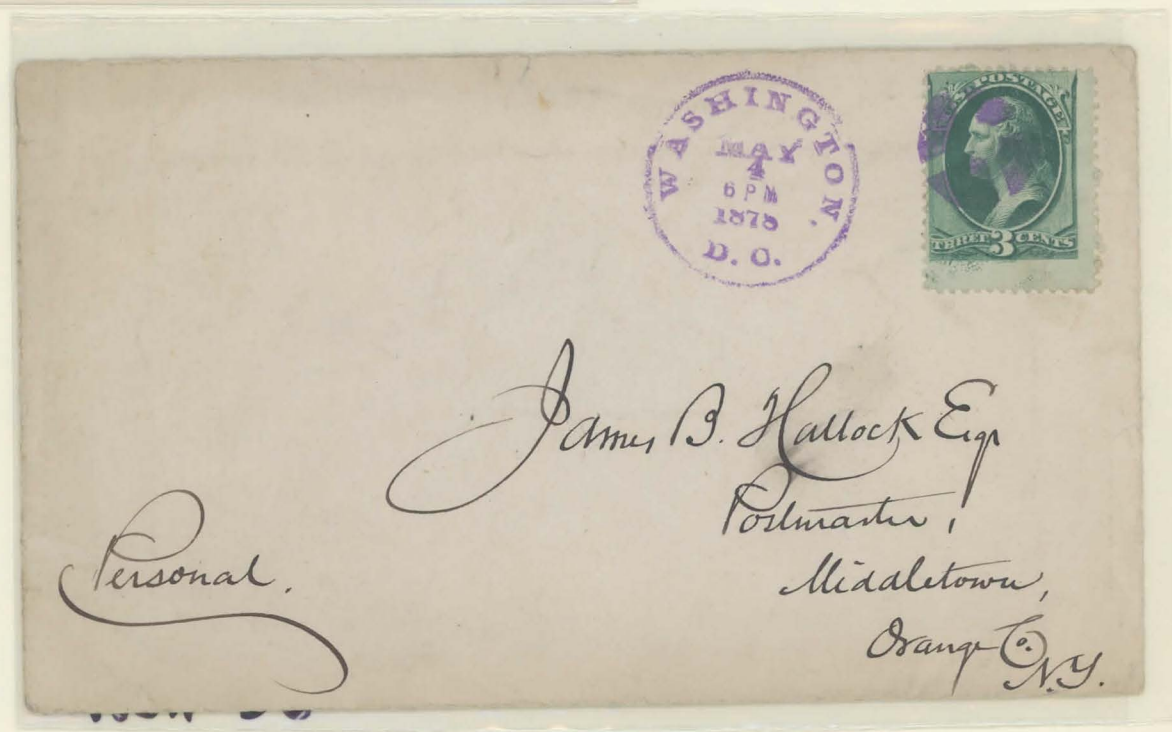 WASHINGTON,
MAY
4
6 PM
1878
D. C.
U.S. POSTAGE
THREE 3 CENTS
James B. Hallock Esqr
Postmaster,
Middletown,
Orange Co.
N.Y.
Personal.